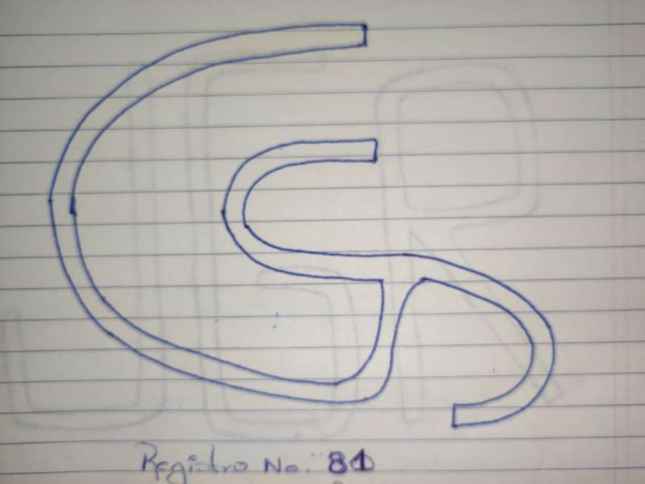 GS
Registro No. 81